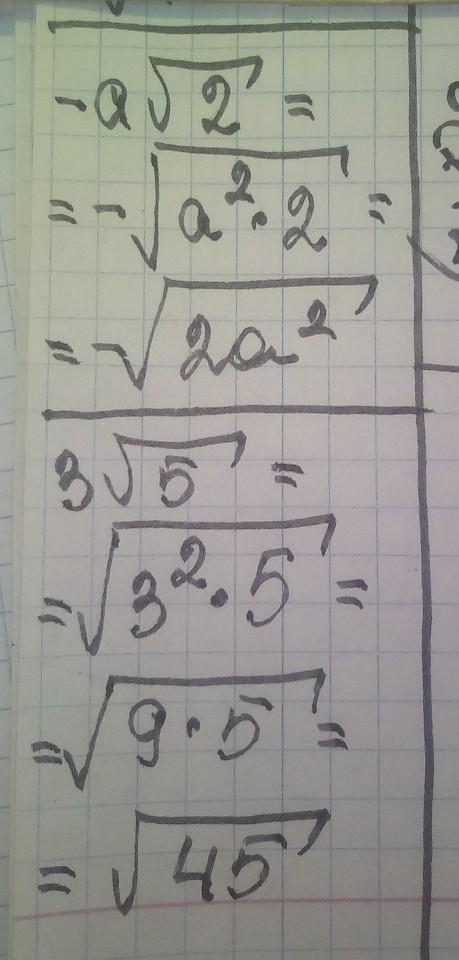 -a√2 =
= -√a²·2 =
= -√2a²
3√5 =
= √3²·5 =
= √9·5 =
= √45